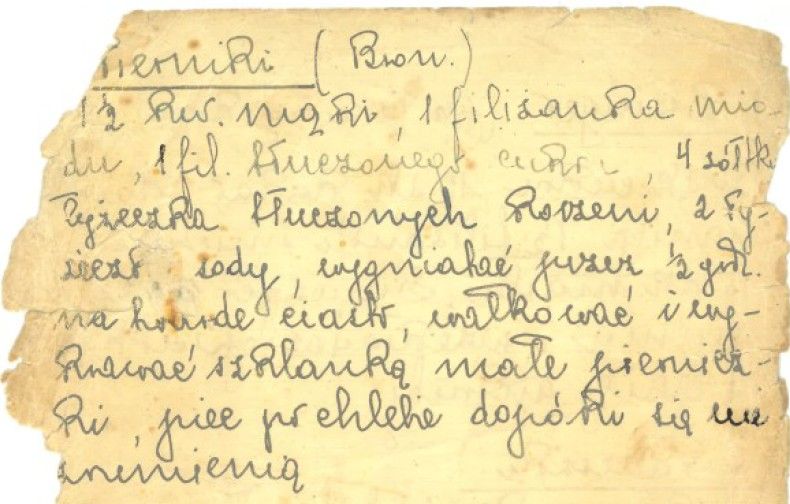 Pierniki (Bron.)
1 ½ kw. mąki, 1 filiżanka mio-
du, 1 fil. tłuczonego cukru, 4 żółtka
łyżeczka tłuczonych korzeni, 2 ły-
żeczk sody, wygniatać przez ½ godz.
na twarde ciasto, wałkować i wy-
krawać szklanką małe piernicz-
ki, piec po chlebie dopóki się nie
zrumienią